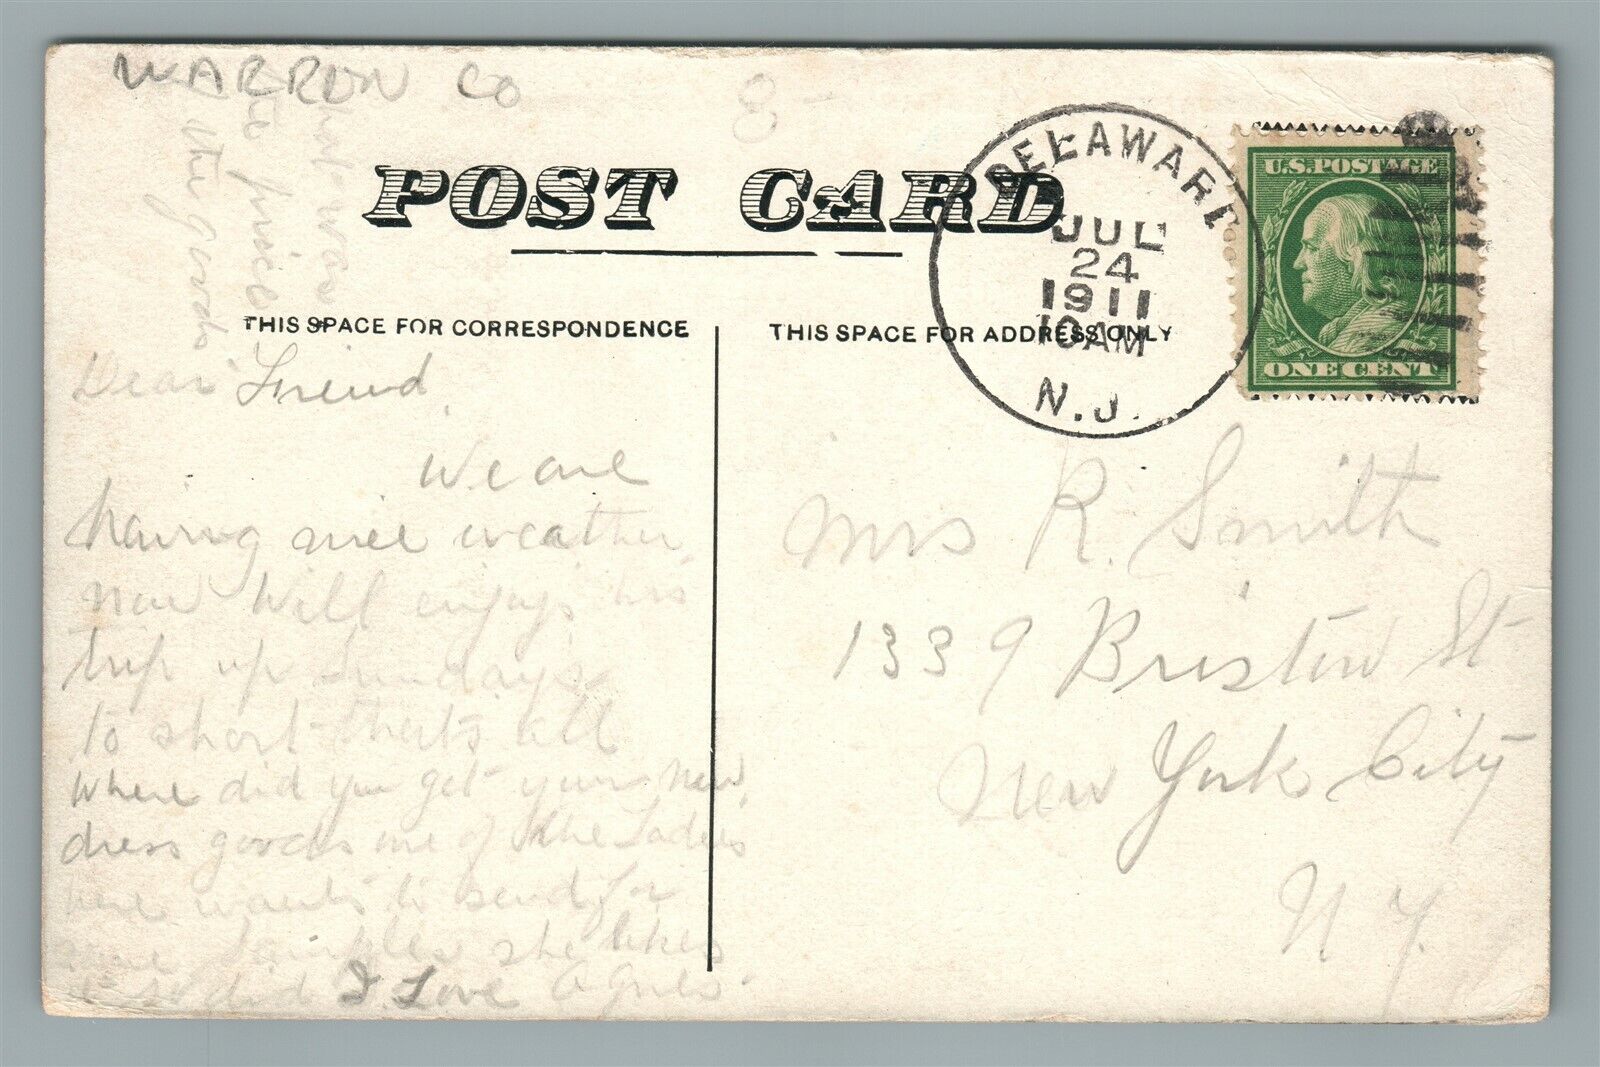 WARREN CO
POST CARD
THIS SPACE FOR CORRESPONDENCE
THIS SPACE FOR ADDRESS ONLY
DELAWARE
JUL
24
1911
10 AM
N.J.
U.S. POSTAGE
ONE CENT
Dear Friend
We are
having nice weather
now Will enjoys his
trip up Sundays
to short thats all
where did you get your new
dress goods one of the Ladies
here wants to send for
some Samples she likes
it so did I Love Agnes
what was
the price
of the goods
Mrs R. Smith
1339 Bristow St
New York City
N.Y.